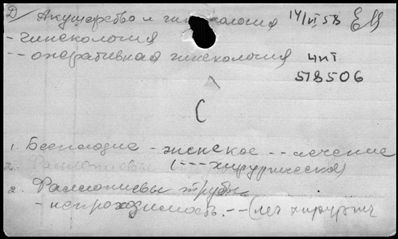 Д/ Акушерство и гинекология 14/VI 58 ЕМ
- гинекология
-- оперативная гинекология 4 и 1
518506
С
1. Бесплодие - женское -- лечение
(--- хирургическое)
2. Фаллопиевы
2. Фаллопиевы трубы
- непроходимость -- (леч хирургич